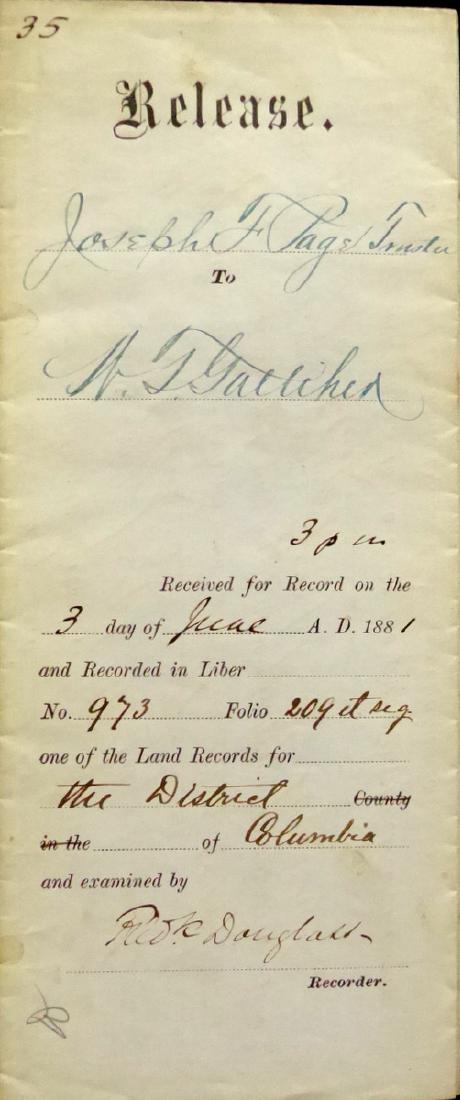 35
Release.
Joseph F Page Trustee
To
W. T. Galliher
3 p m
Received for Record on the
3 day of June A. D. 1881
and Recorded in Liber
No. 973 Folio 209 et seq
one of the Land Records for
the District County
in the of Columbia
and examined by
Fredk Douglass
Recorder.